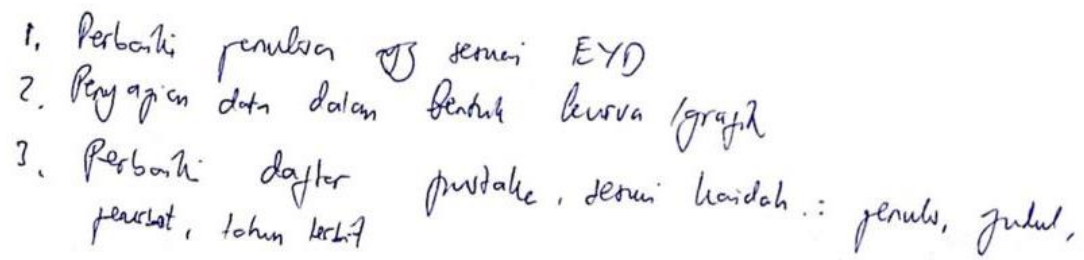 1. Perbaiki penulisan yg sesuai EYD
2. Penyajian data dalam bentuk kurva /grafik
3. Perbaiki daftar pustaka, sesuai kaidah : penulis, judul,
penerbit, tahun terbit